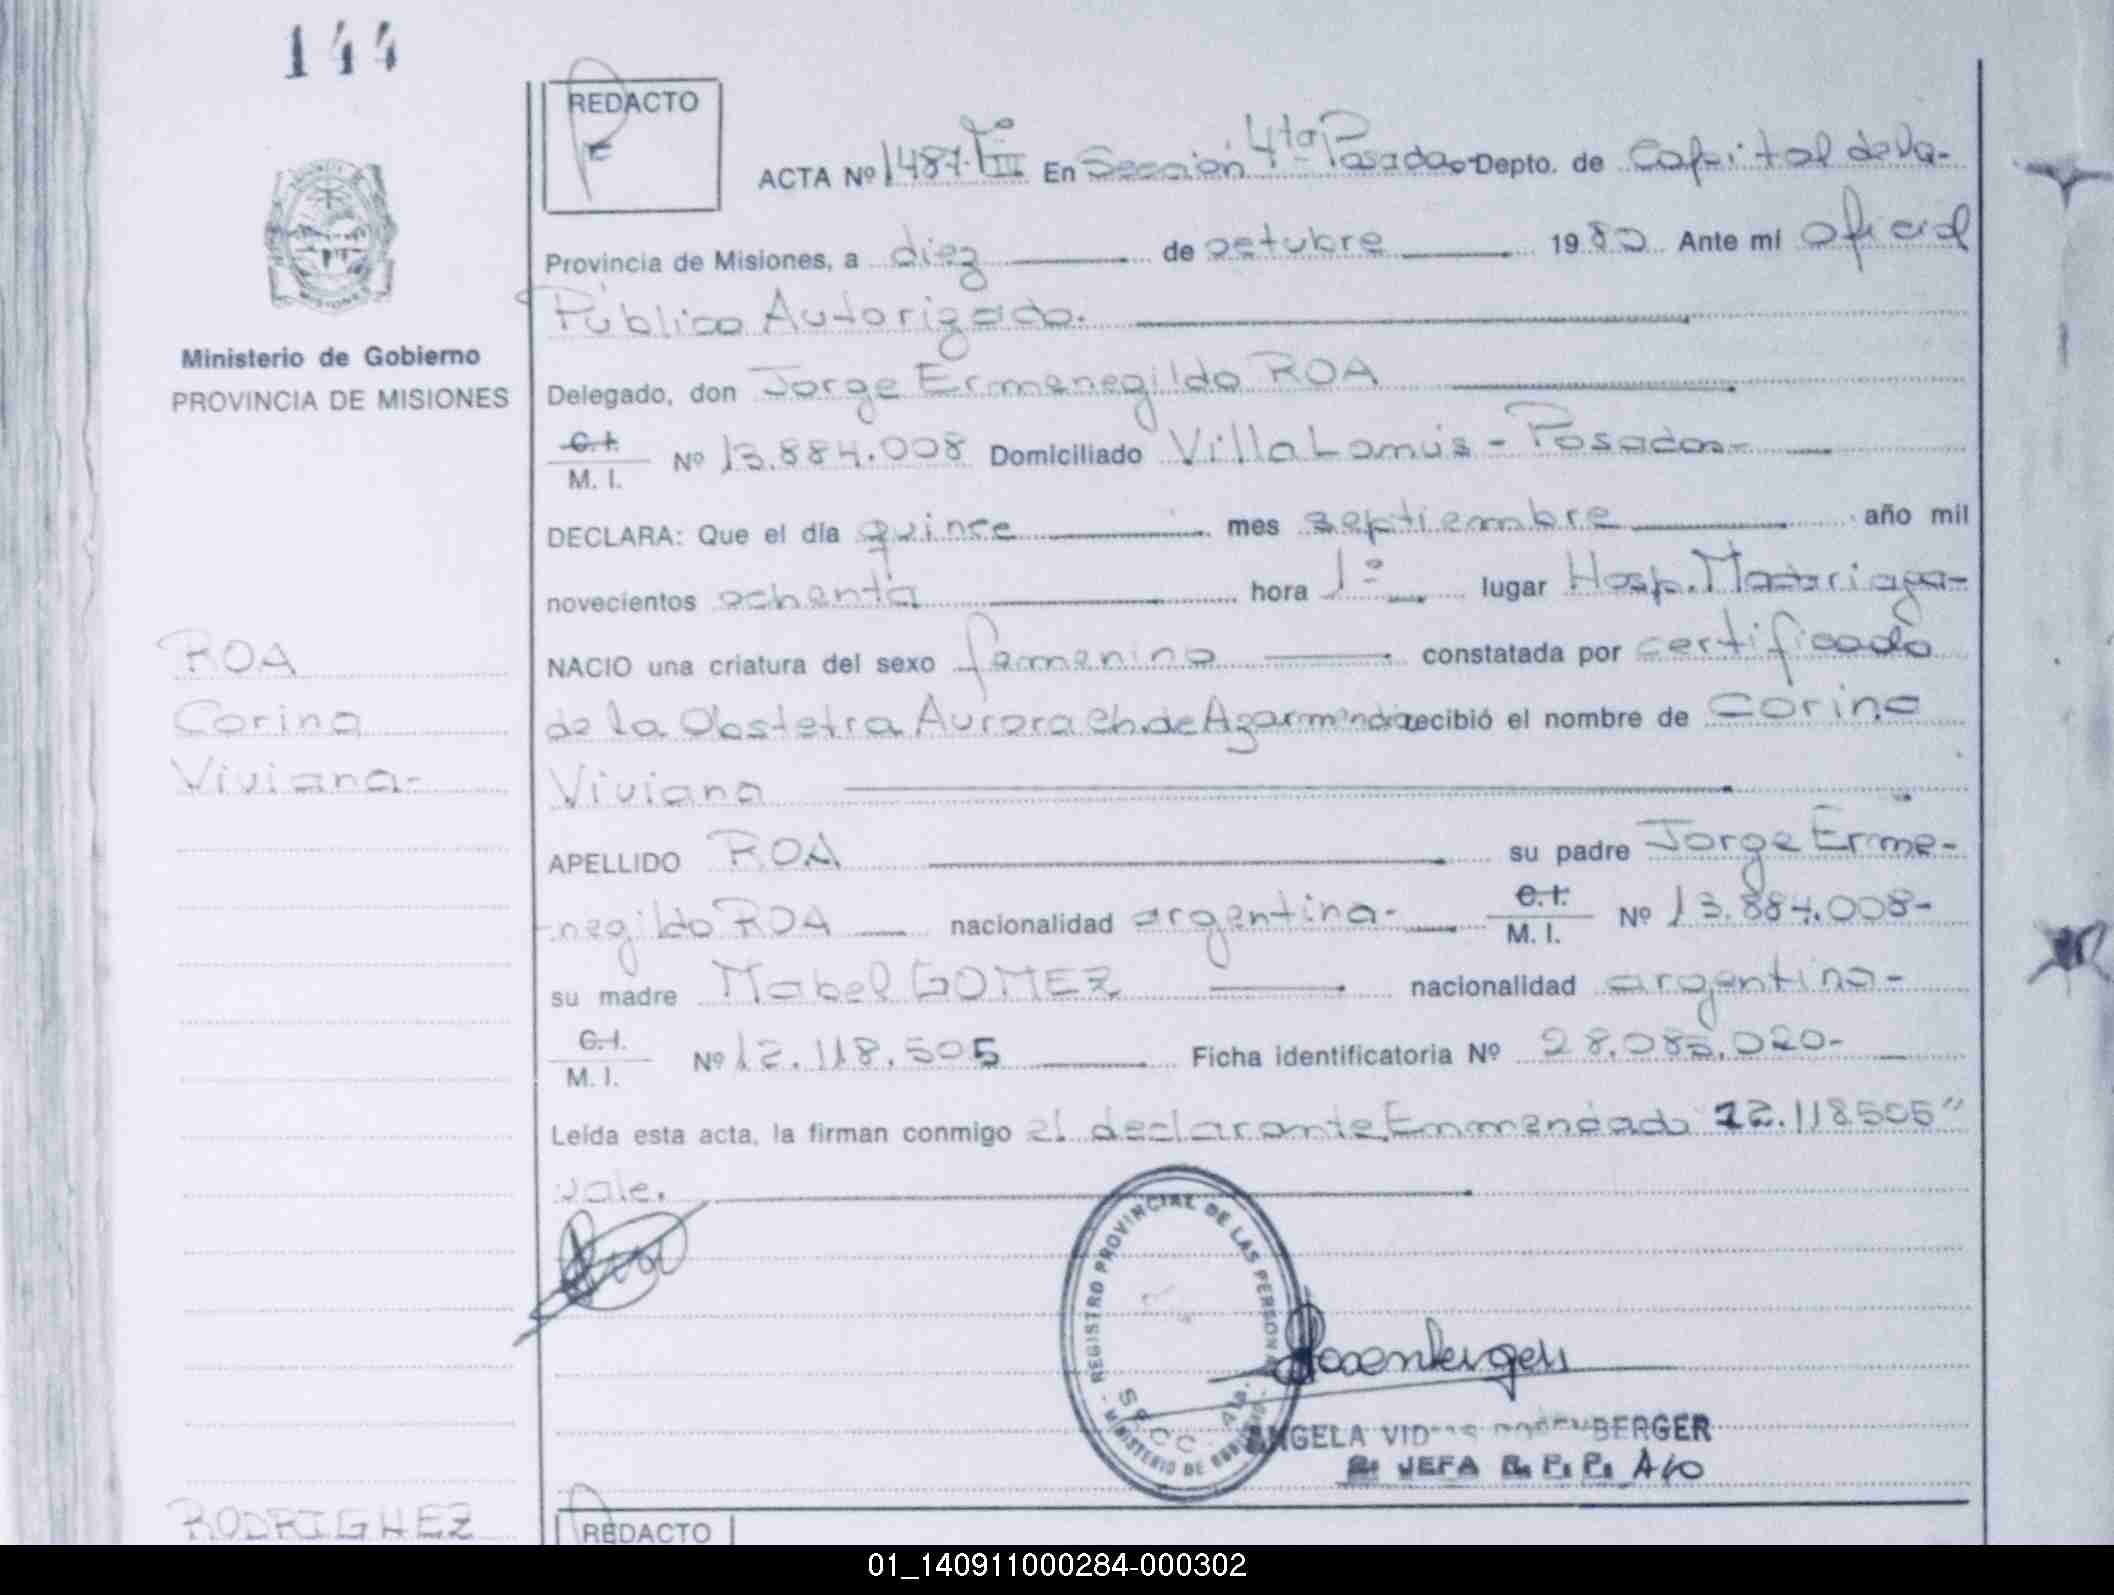 144
REDACTO
ACTA Nº 1487-TºIII En Sección 4ta Posadas Depto. de Capital de la-
Provincia de Misiones, a diez de octubre 1980 Ante mí Oficial
Público Autorizado.
Ministerio de Gobierno
PROVINCIA DE MISIONES
Delegado, don Jorge Ermenegildo ROA
C.I.
M. I. Nº 13.884.008 Domiciliado Villa Lanús - Posadas-
DECLARA: Que el día quince mes septiembre año mil
novecientos ochenta hora 1º lugar Hosp. Madariaga-
ROA
Corina
Viviana-
NACIO una criatura del sexo femenino constatada por certificado
de la Obstetra Aurora Ch. de Azarmendia recibió el nombre de Corina
Viviana
APELLIDO ROA su padre Jorge Erme-
-negildo ROA nacionalidad argentina- C.I.
M. I. Nº 13.884.008-
su madre Mabel GOMEZ nacionalidad argentina-
C.I.
M. I. Nº 12.118.505 Ficha identificatoria Nº 28.085.020-
Leída esta acta, la firman conmigo el declarante. Enmendado 12.118505"
vale.
REGISTRO PROVINCIAL DE LAS PERSONAS
SECC. 4ta.
- MINISTERIO DE GOBIERNO -
ANGELA BERGER
JEFA
RODRIGHEZ
REDACTO
MISIONES
01_140911000284-000302